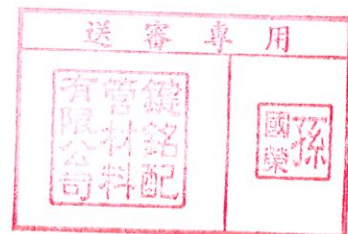 送審專用
鍵銘配
管材料
有限公司
孫
國榮